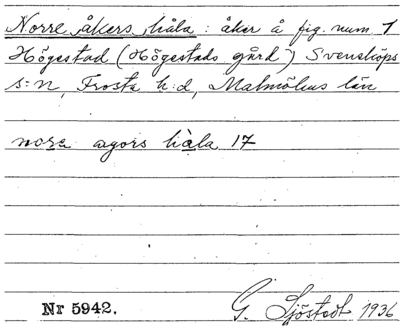 Norre åkers håla : åker å fig. num 1
Högestad (Högestads gård) Svensköps
s:n, Frosta h:d, Malmöhus län
nora agors håla 17
Nr 5942.
G. Sjöstedt 1936